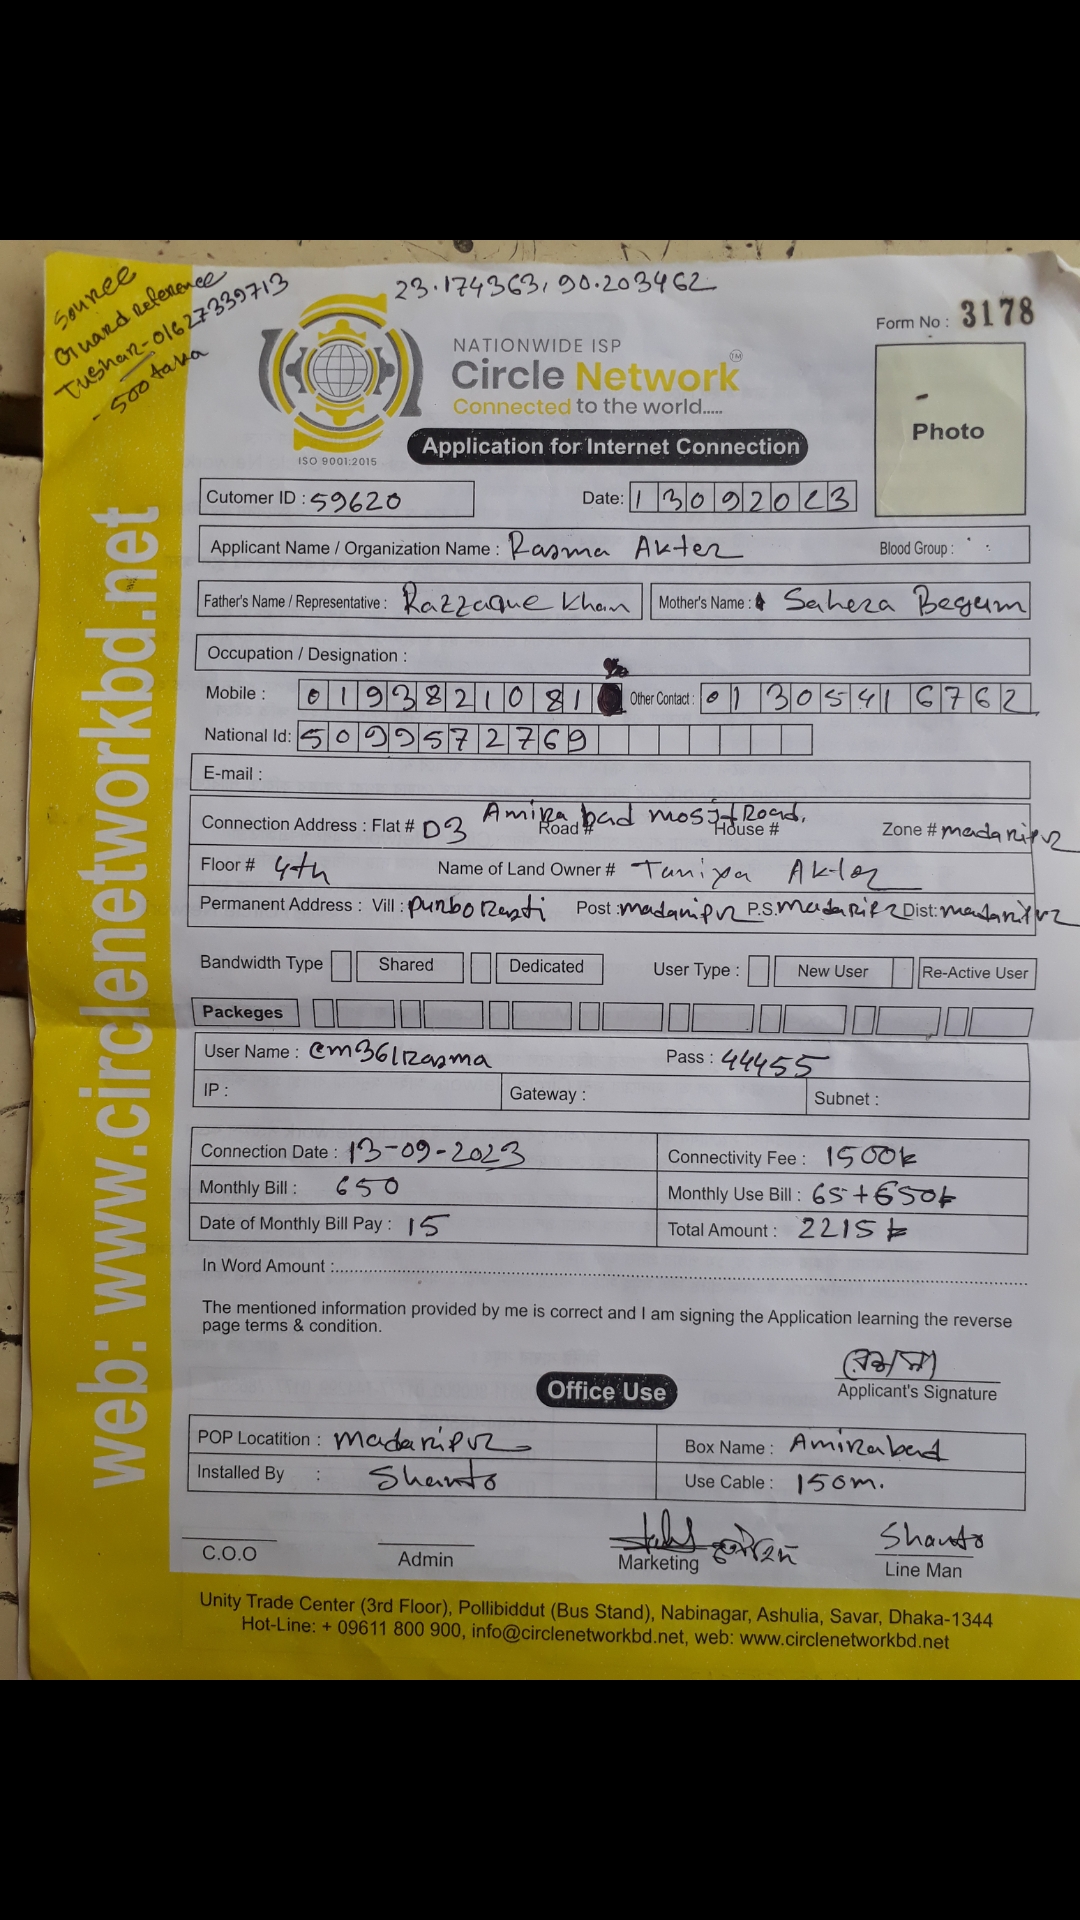 Source
Guard reference
Tushar-01627339713
- 500 taka
23.174363, 90.203462
Form No : 3178
NATIONWIDE ISP
Circle Network TM
Connected to the world.....
ISO 9001:2015
Application for Internet Connection
Photo
Cutomer ID : 59620 Date: 13092023
Applicant Name / Organization Name : Rasma Akter Blood Group :
Father's Name / Representative : Razzaque Khan Mother's Name : Sahera Begum
Occupation / Designation :
Mobile : 0193821081 Other Contact : 01305416762
National Id: 5099572769
E-mail :
Connection Address : Flat # D3 Amirabad mosjt Road, Road # House # Zone # madaripur
Floor # 4th Name of Land Owner # Taniya Akter
Permanent Address : Vill : Purbo Rasti Post : madaripur P.S. madaripur Dist: madaripur
Bandwidth Type Shared Dedicated User Type : New User Re-Active User
Packeges
User Name : cm361rasma Pass : 44455
IP : Gateway : Subnet :
Connection Date : 13-09-2023 Connectivity Fee : 1500tk
Monthly Bill : 650 Monthly Use Bill : 65+650tk
Date of Monthly Bill Pay : 15 Total Amount : 2215tk
In Word Amount :
The mentioned information provided by me is correct and I am signing the Application learning the reverse
page terms & condition.
Applicant's Signature
Office Use
POP Locatition : madaripur Box Name : Amirabad
Installed By : Shanto Use Cable : 150m.
Shanto
C.O.O Admin Marketing Line Man
Unity Trade Center (3rd Floor), Pollibiddut (Bus Stand), Nabinagar, Ashulia, Savar, Dhaka-1344
Hot-Line: + 09611 800 900, info@circlenetworkbd.net, web: www.circlenetworkbd.net
web: www.circlenetworkbd.net